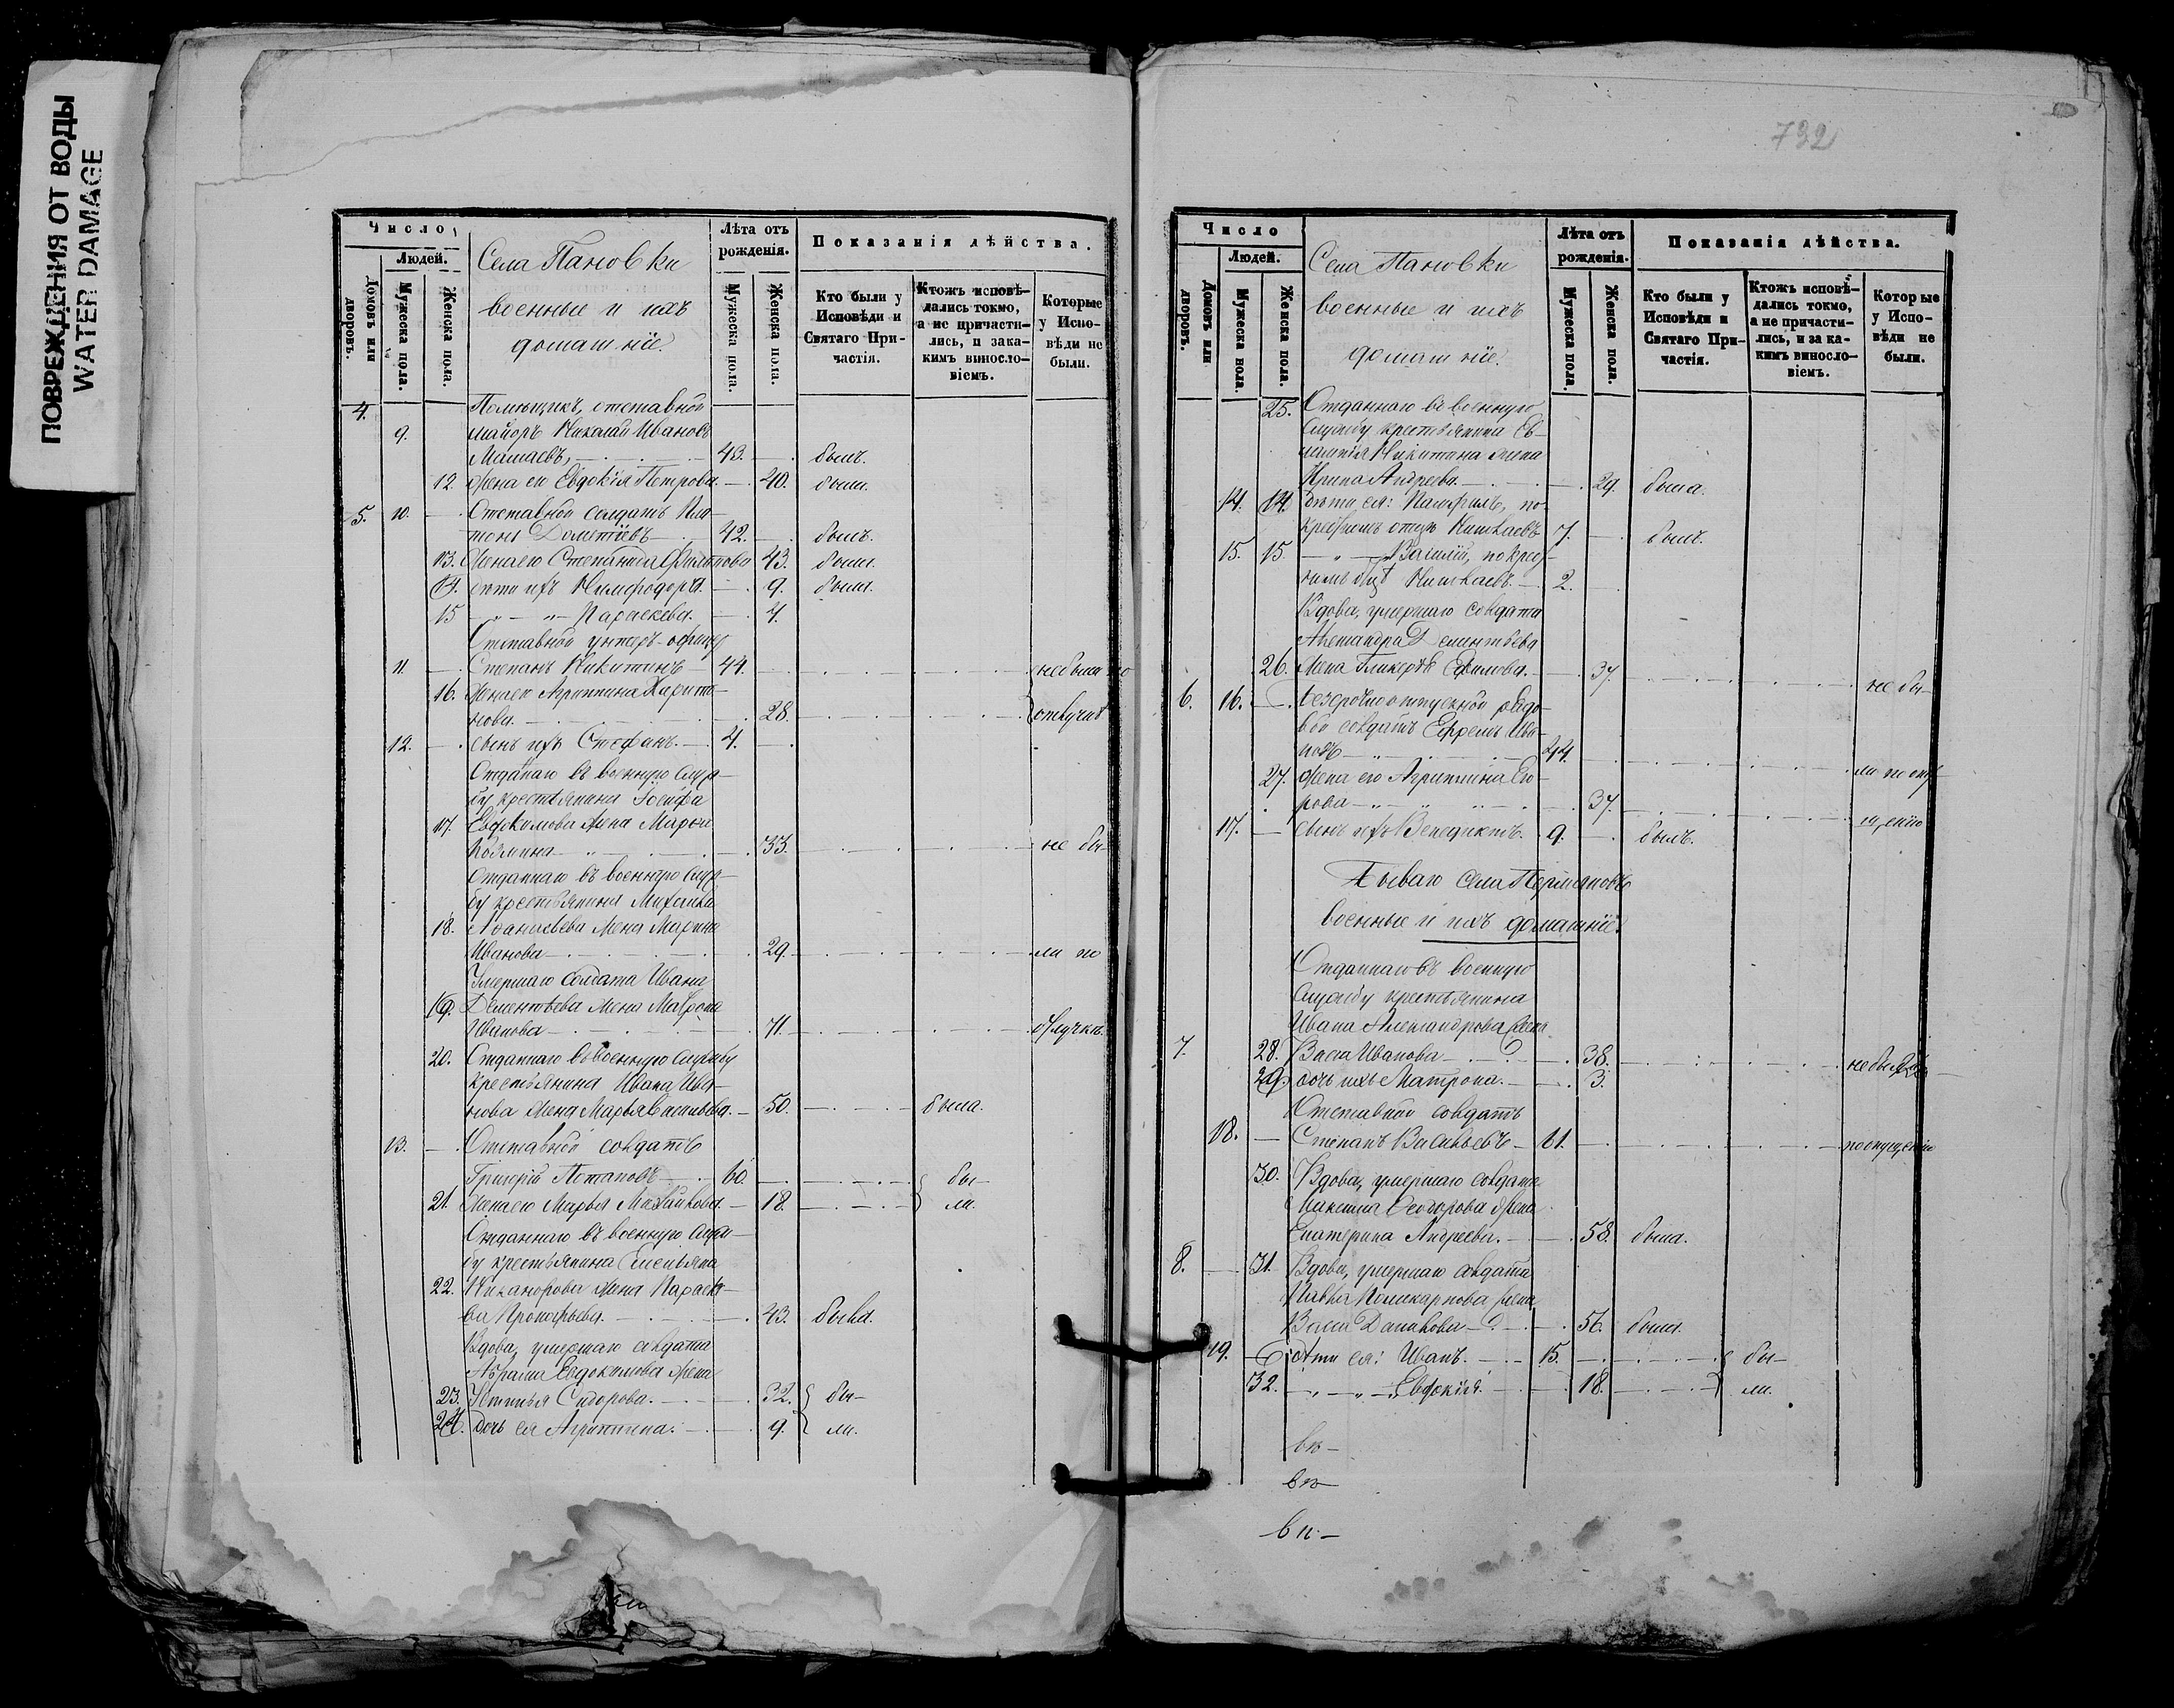 ПОВРЕЖДЕНИЯ ОТ ВОДЫ
WATER DAMAGE
Число
Людей.
Домовъ или дворовъ.
Мужеска пола.
Женска пола.
Села Пановки
военные и ихъ
домашніе.
Лѣта отъ
рожденія.
Мужеска пола.
Женска пола.
Показанія дѣйства.
Кто были у
Исповѣди и
Святаго При-
частія.
Ктожъ исповѣ-
дались токмо,
а не причасти-
лись, и зака-
кимъ виносло-
віемъ.
Которые
у Испо-
вѣди не
были.
4. Помѣщикъ, отставной
9. маіоръ Николай Ивановъ
43. былъ.
12. жена его Евдокія Петрова. 40. была.
5. 10. Отставной солдатъ
42. былъ.
13. Жена его Степанида Филипова 43. была.
14. дѣти ихъ Нимфодора. 9. была.
15 Параскева. 4.
Отставной унтеръ-офицеръ
11. Степанъ Никитинъ 44. небыли по
16. Жена его Агриппина Харито-
нова. 28. отлучкѣ
12. сынъ ихъ Стефанъ. 4.
Отданнаго въ военную служ-
бу крестьянина Іосифа
17. Евдокимова жена Марѳа
33. не бы-
Отданнаго въ военную служ-
бу крестьянина Михаила
18. Аѳанасьева жена Марина
Иванова 29. ли по
Умершаго солдата Ивана
19. Дементьева жена Матрона
Иванова 71. отлучкѣ.
20. Отданнаго въ военную службу
крестьянина Ивана Ива-
нова жена Марья Васильева. 50. была.
13. Отставной солдатъ
Григорій Потаповъ 60. бы-
21. Жена его Марья Михайлова. 18. ли.
Отданнаго въ военную служ-
бу крестьянина Емельяна
22. Никанорова жена Параске-
ва Прокофьева. 43. была.
Вдова, умершаго солдата
Абрама Евдокимова жена
23. Устинья Сидорова. 32. бы-
24. дочь ея Агриппина. 9. ли.
732
Число
Людей.
Домовъ или дворовъ.
Мужеска пола.
Женска пола.
Села Пановки
военные и ихъ
домашніе.
Лѣта отъ
рожденія.
Мужеска пола.
Женска пола.
Показанія дѣйства.
Кто были у
Исповѣди и
Святаго При-
частія.
Ктожъ исповѣ-
дались токмо,
а не причасти-
лись, и за ка-
кимъ виносло-
віемъ.
Которые
у Испо-
вѣди не
были.
25. Отданнаго въ военную
службу крестьянина Ев-
Никитина жена
Ирина Андреева. 29. была.
14. 14. дѣти ея: Памфилъ, по
крестномъ отцѣ 7. былъ.
15. 15. Василій, по крест-
2.
Вдова, умершаго солдата
Александра Дементьева
26. жена Гликерія Ефимова. 37. не бы-
6. 16. безсрочноотпускной рядо-
вой солдатъ Ефремъ Ива-
новъ 44.
27. жена его Агриппина Его- ли по опу-
рова 37. щенію
17. сынъ ихъ Венедиктъ. 9. былъ.
военные и ихъ домашніе.
Отданнаго въ военную
службу крестьянина
Ивана Александрова жена
7. 28. Васса Иванова 38. небыли
29. дочь ихъ Матрона. 3.
Отставной солдатъ
18. Степанъ Васильевъ 61. поопущенію
30. Вдова, умершаго солдата
Никиты Ѳеодорова жена
Екатерина Андреева. 58. была.
8. 31. Вдова, умершаго солдата
Павла Поликарпова жена
Васса Данилова 56. была.
19. дѣти ея: Иванъ. 15. бы-
32. Евдокія. 18. ли.